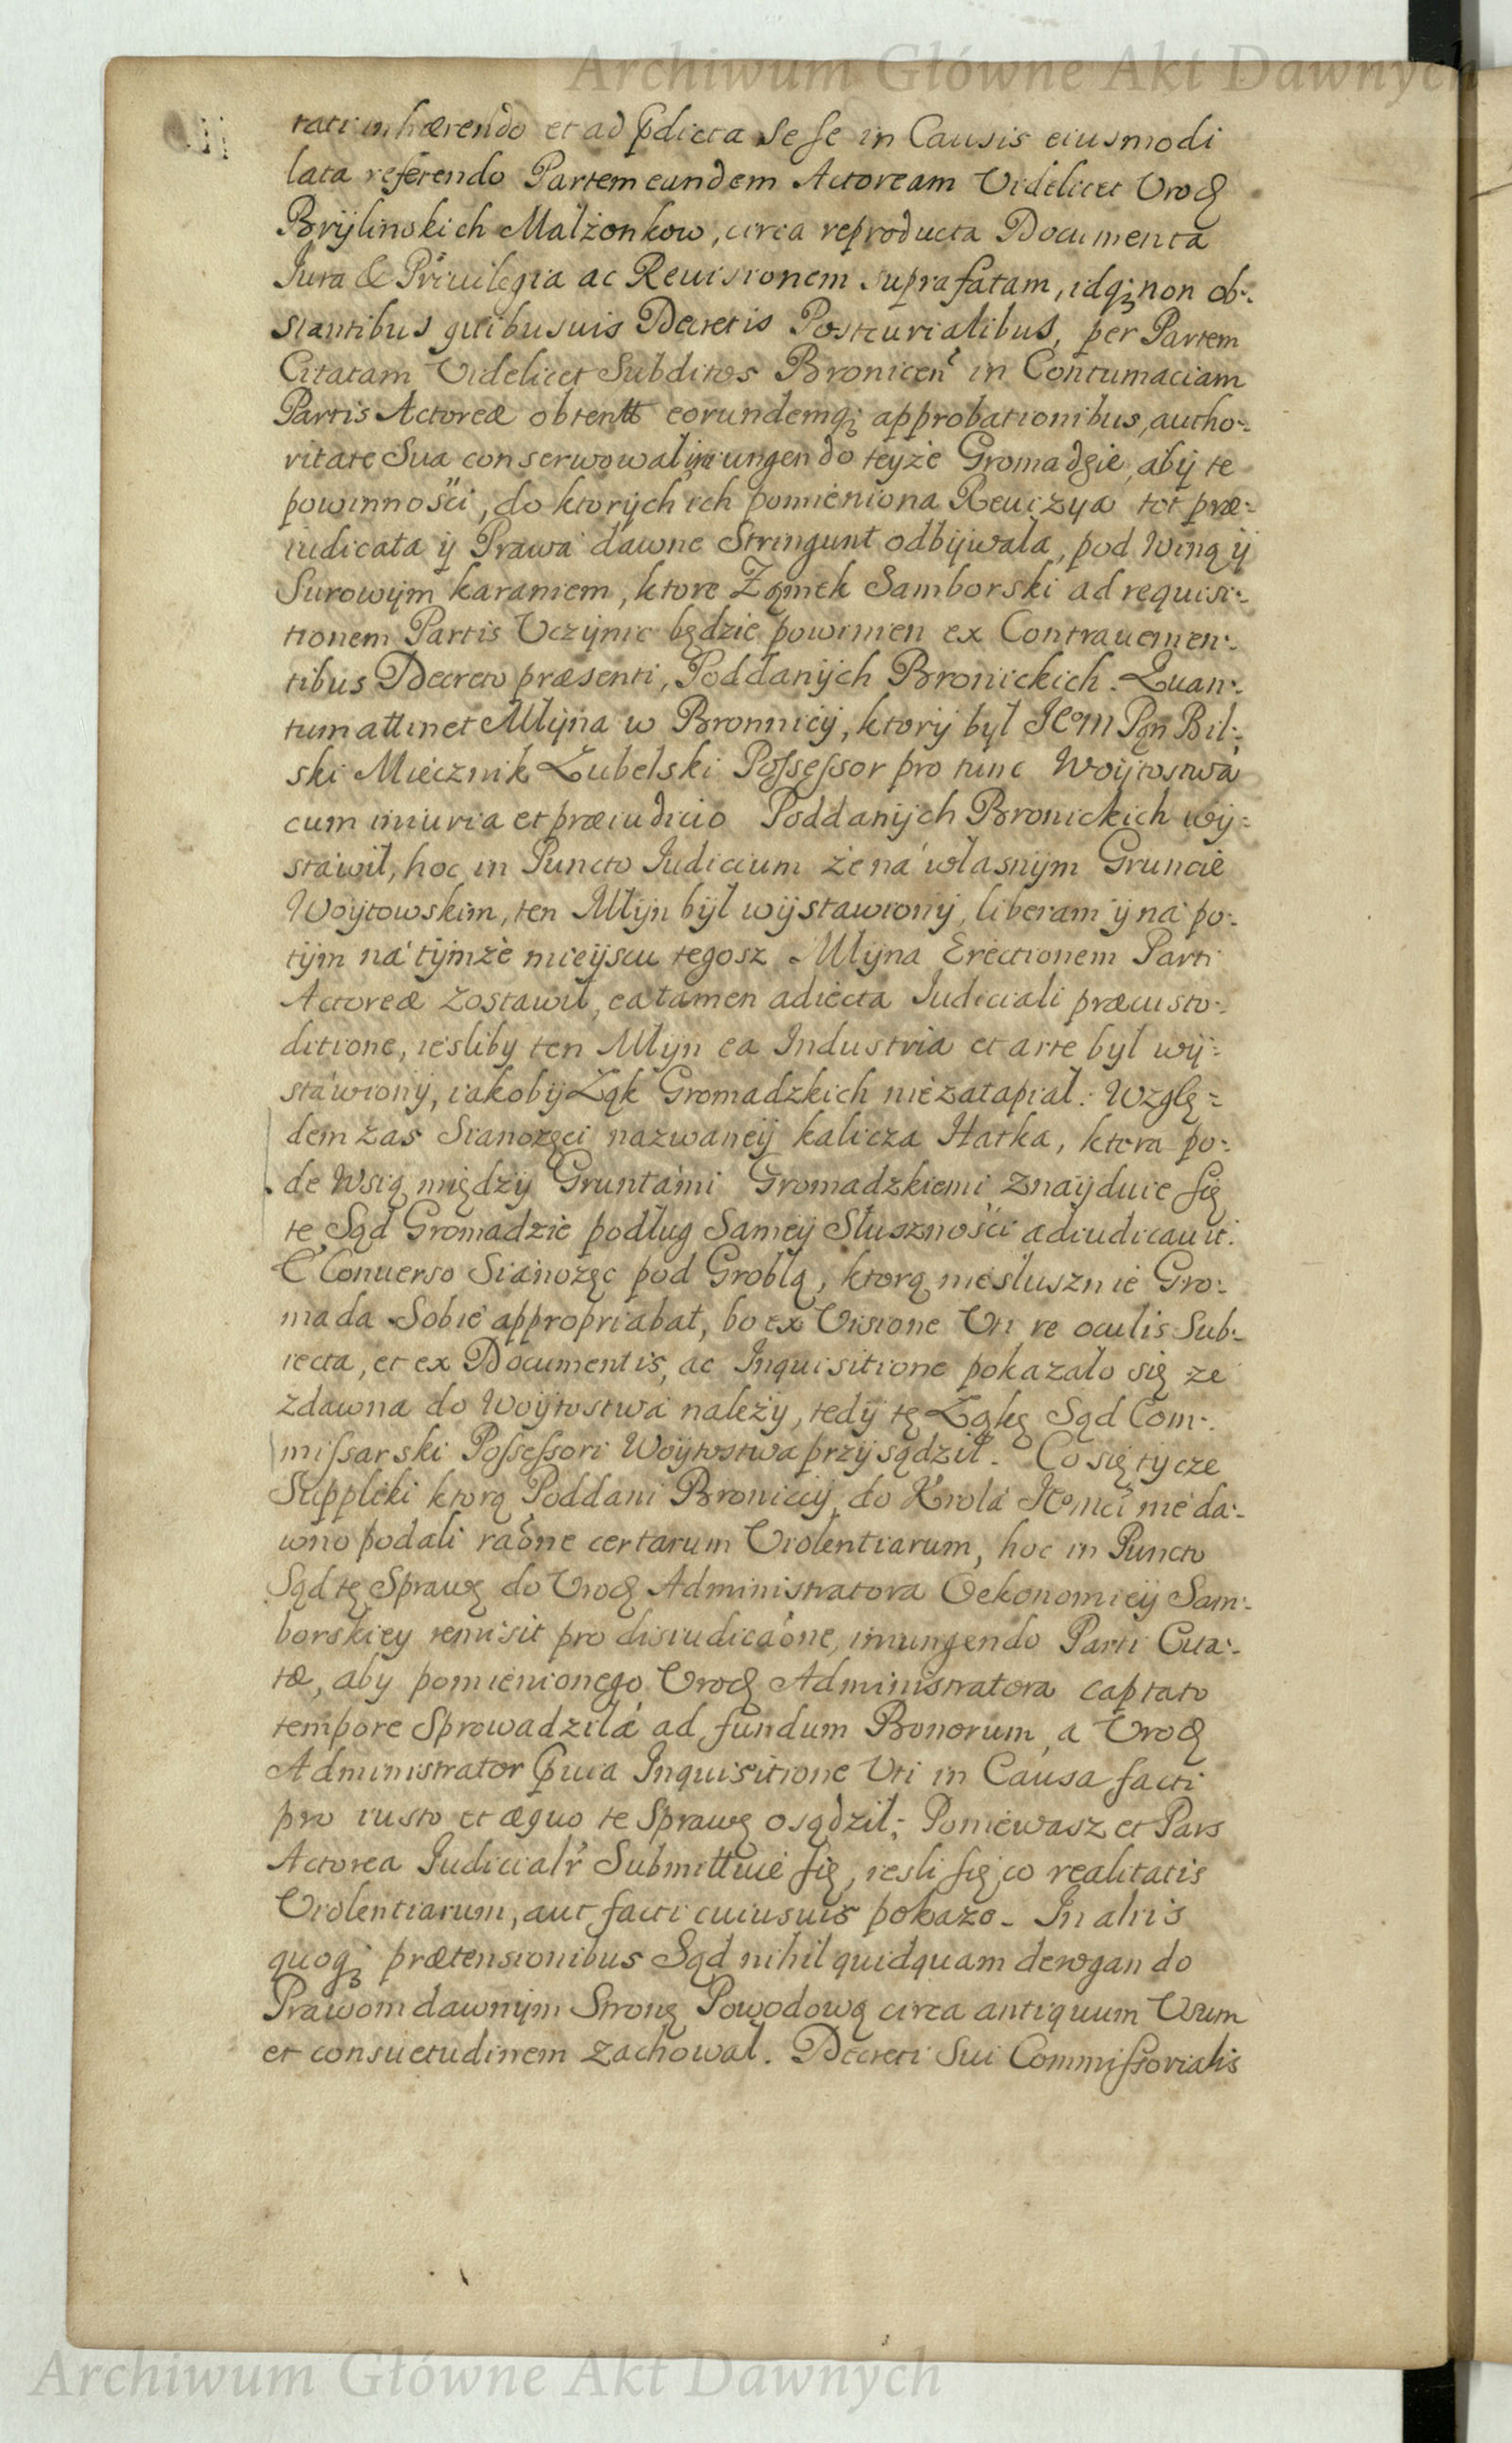 Archiwum Główne Akt Dawnych
tati inhærendo et ad p̃dicta Sese in Causis eiusmodi
lata referendo Partem eandem Actoream Videlicet Urod
Brylinskich Malżonkow, circa reproducta Documenta
Jura & Priuilegia ac Reuisionem suprafatam, idq; non ob:
stantibus quibusuis Decretis Postcurialibus, per Partem
Citatam Videlicet Subditos Bronicen̄ in Contumaciam
Partis Actoreæ obtentt eorundemq; approbationibus, autho:
ritate Sua conserwowal iniungendo teyże Gromadzie, aby te
powinności, do ktorych ich pomieniona Reuizya tot præ:
iudicata y Prawa dawne Stringunt odbywala, pod Winą y
Surowym karaniem, ktore Zamek Samborski ad requisi:
tionem Partis Uczynic będzie powinien ex Contrauenien:
tibus Decreto præsenti, Poddanych Bronickich. Quan:
tum attinet Młyna w Bronnicy, ktory był JEoM Pan Bil:
ski Miecznik Lubelski Possessor pro tunc Woytostwa
cum iniuria et præiudicio Poddanych Bronickich wy:
stawił, hoc in Puncto Iudicium że na własnym Gruncie
Woytowskim, ten Młyn był wystawiony, liberam y na po:
tym na tymże mieyscu tegosz Młyna Erectionem Parti
Actoreæ zostawił, ea tamen adiecta Iudiciali præcusto:
ditione, iesliby ten Młyn ea Industria et arte był wy:
stawiony, iakoby Łąk Gromadzkich nie zatapiał. Wzglę:
dem zas Sianożęci nazwaney kalicza Hatka, ktora po:
de Wsią między Gruntami Gromadzkiemi znayduie się
te Sąd Gromadzie podług Samey Słuszności adiudicauit.
E Conuerso Sianożęc pod Groblą, ktorą niesłusznie Gro:
mada Sobie appropriabat, bo ex Visione Uti re oculis Sub:
iecta, et ex Documentis, ac Inquisitione pokazało się że
zdawna do Woytostwa należy, tedy tę Łąkę Sąd Com:
missarski Possessori Woytostwa przysądził. Co się tycze
Suppliki ktorą Poddani Broniccy do Krola JEomci nie da:
wno podali raõne certarum Violentiarum, hoc in Puncto
Sąd tę Sprawę do Urod Administratora Oekonomiey Sam:
borskiey remisit pro disiudicaõne, iniungendo Parti Cita:
tæ, aby pomienionego Urod Administratora captato
tempore Sprowadziła ad fundum Bonorum, a Urod
Administrator p̃uia Inquisitione Uti in Causa facti
pro iusto et æquo te Sprawę osądził; Poniewasz et Pars
Actorea Iudicialr̃ Submittuie się, iesli się co realitatis
Violentiarum, aut facti cuiusuis pokaże. In aliis
quoq; prætensionibus Sąd nihil quidquam derogando
Prawom dawnym Stronę Powodową circa antiquum Usum
et consuetudinem zachował. Decreti Sui Commissorialis
Archiwum Główne Akt Dawnych